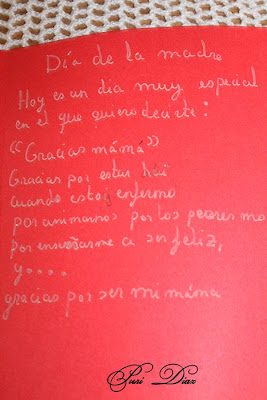 Día de la madre
Hoy es un dia muy especial
en el que quiero decirte:
"Gracias mámá"
Gracias por estar hai
cuando estoy enfermo
por animarnos por los peores mo
por enseñarme a ser feliz,
y....
gracias por ser mi máma
Puri Diaz